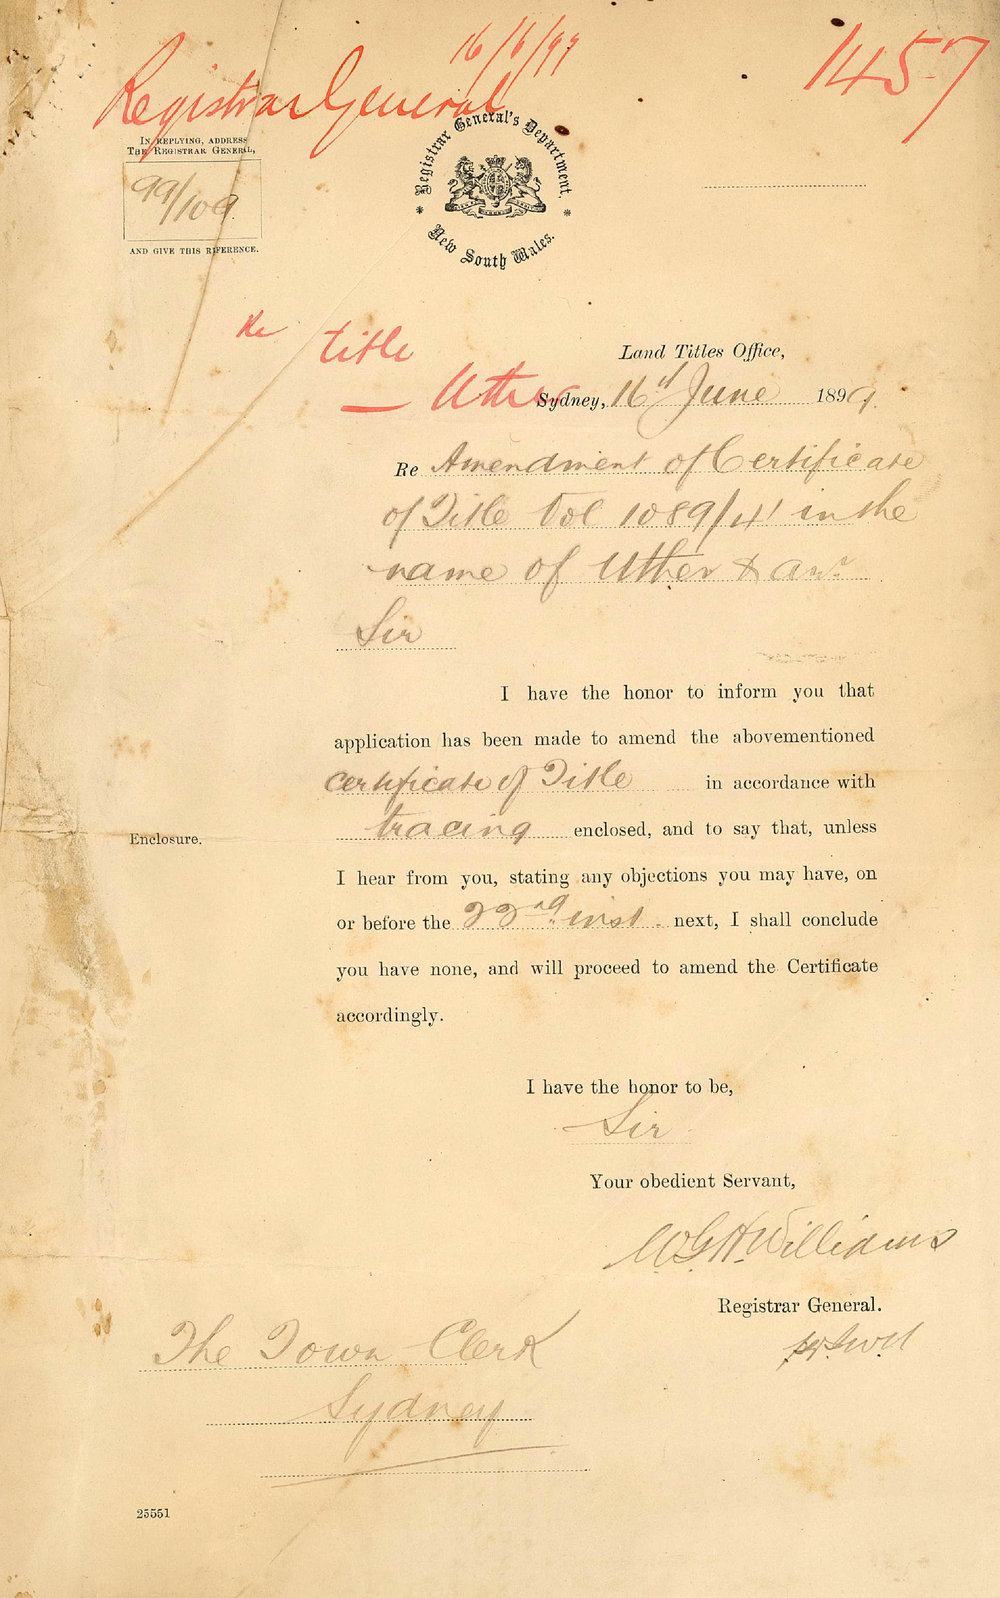 16/6/99
1457
Registrar General
IN REPLYING, ADDRESS
THE REGISTRAR GENERAL,
99/109
AND GIVE THIS REFERENCE.
Registrar General's Department,
New South Wales.
Re title
— Uther
Land Titles Office,
Sydney, 16th June 1899.
Re Amendment of Certificate
of Title Vol 1089/41 in the
name of Uther & anr
Sir
I have the honor to inform you that
application has been made to amend the abovementioned
certificate of Title in accordance with
Enclosure.
tracing enclosed, and to say that, unless
I hear from you, stating any objections you may have, on
or before the 22nd inst. next, I shall conclude
you have none, and will proceed to amend the Certificate
accordingly.
I have the honor to be,
Sir
Your obedient Servant,
WGHWilliams
Registrar General.
The Town Clerk
Sydney
25551